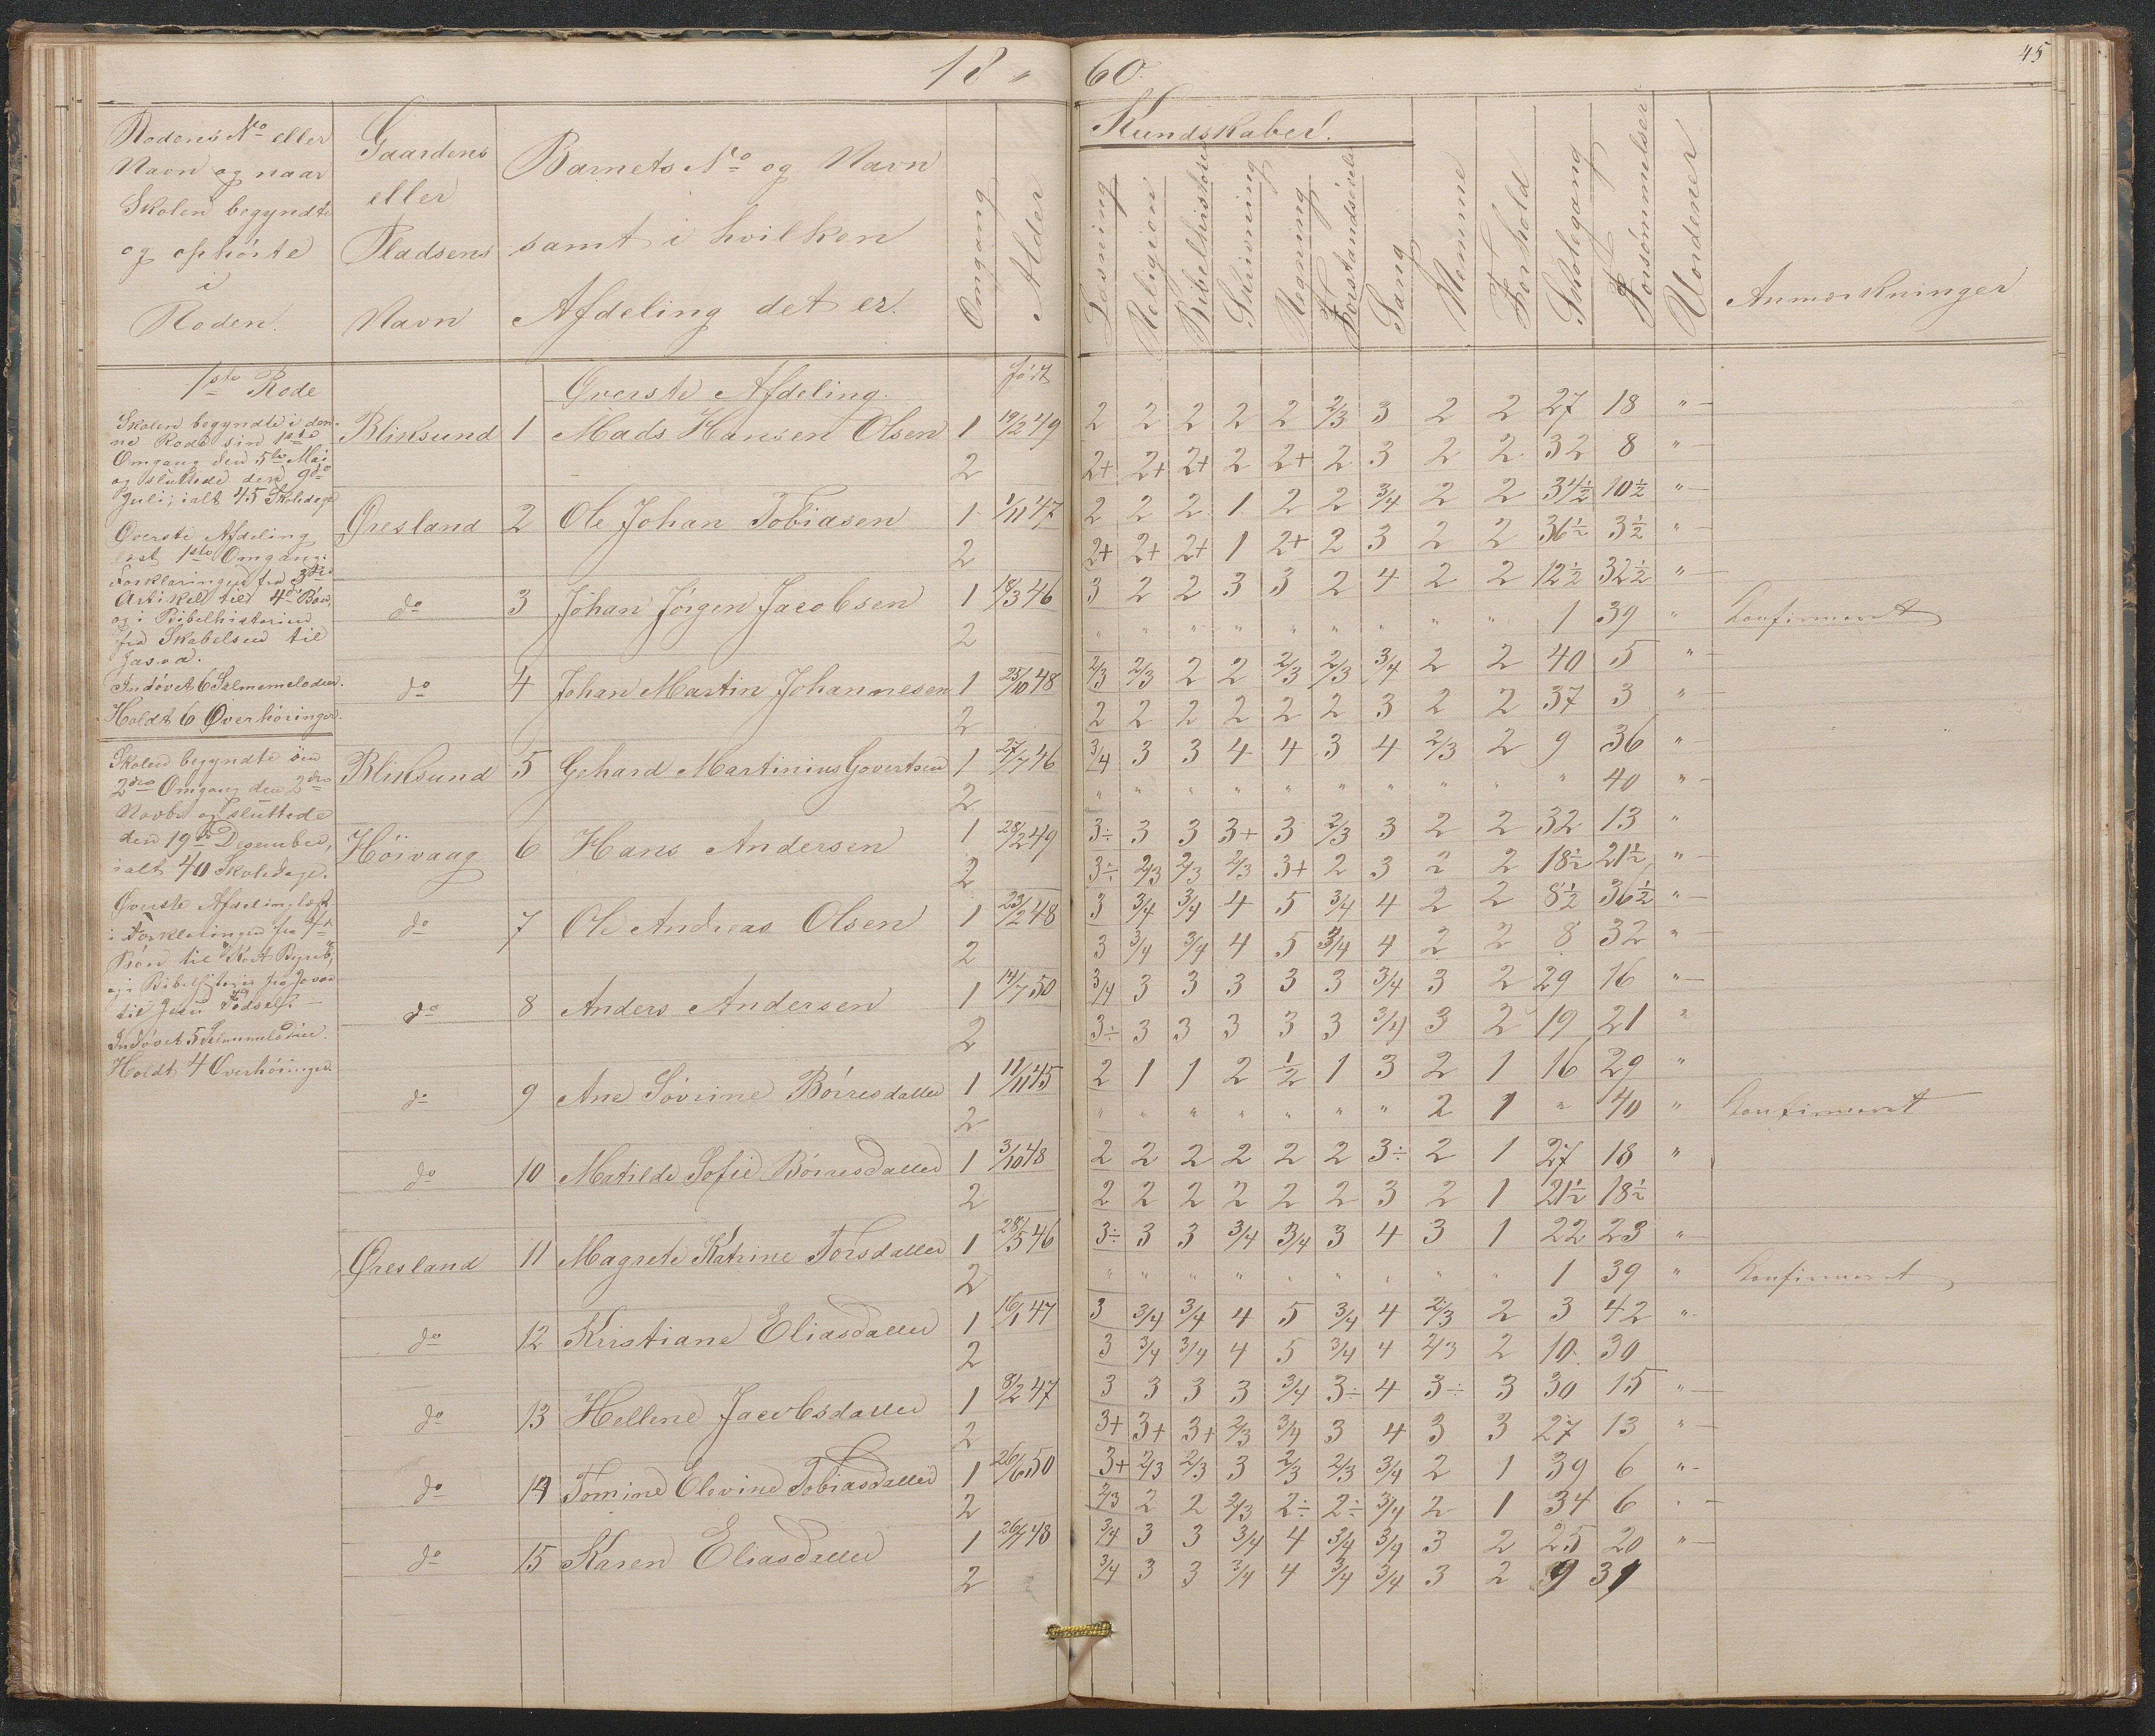 18 " 60.
45
Rodens No eller
Navn og naar
Skolen begyndte
og ophörte
i
Roden.
Gaardens
eller
Pladsens
Navn
Barnets No og Navn
samt i hvilken
Afdeling det er.
Omgang
Alder
Kundskaber.
Læsning
Religion
Bibelhistorie
Skrivning
Regning
Forstandsøvelse
Sang
Nemme
Forhold
Skolegang
Forsömmelser
Uordener
Anmærkninger
1ste Rode
Skolen begyndte i den-
ne Rode sin 1ste
Omgang den 5te Mai
og sluttede den 9de
Juli; ialt 45 Skoledage
Överste Afdeling
læst 1ste Omgang:
Forklaringen fra 3die
Artikel til 4de Bön,
og i Bibelhistorien
fra Skabelsen til
Josva.
Indövet 6 Salmemelodier.
Holdt 6 Överhöringer.
Skolen begyndte sin
2den Omgang den 2den
Novbr og sluttede
den 19de Desember,
ialt 40 Skoledage.
Överste Afdeling læst
i Forklaringen fra 4de
Bön til "Kort Begreb",
og i Bibelhistorie fra Josva
til Jesu Födsel. —
Indövet 5 Salmemelodier.
Holdt 4 Överhöringer.
Överste Afdeling.
födt
Bliksund 1 Mads Hansen Olsen 1 19/2 49 2 2 2 2 2 2/3 3 2 2 27 18 "
2 2+ 2+ 2+ 2 2+ 2 3 2 2 32 8 "
Öresland 2 Ole Johan Tobiasen 1 1/11 47 2 2 2 1 2 2 3/4 2 2 34½ 10½ "
2 2+ 2+ 2+ 1 2+ 2 3 2 2 36½ 3½ "
do 3 Johan Jörgen Jacobsen 1 18/3 46 3 2 2 3 3 2 4 2 2 12½ 32½ "
2 " " " " " " " " " 1 39 " Confirmeret
do 4 Johan Martin Johannesen 1 25/10 48 2/3 2/3 2 2 2/3 2/3 3/4 2 2 40 5 "
2 2 2 2 2 2 2 3 2 2 37 3 "
Bliksund 5 Gehard Martinius Govertsen 1 27/7 46 3/4 3 3 4 4 3 4 2/3 2 9 36 "
2 " " " " " " " " " " 40 "
Höivaag 6 Hans Andersen 1 28/2 49 3÷ 3 3 3+ 3 2/3 3 2 2 32 13 "
2 3÷ 2/3 2/3 2/3 3+ 2 3 2 2 18½ 21½ "
do 7 Ole Andreas Olsen 1 23/2 48 3 3/4 3/4 4 5 3/4 4 2 2 8½ 36½ "
2 3 3/4 3/4 4 5 3/4 4 2 2 8 32 "
do 8 Anders Andersen 1 14/7 50 3/4 3 3 3 3 3 3/4 3 2 29 16 "
2 3÷ 3 3 3 3 3 3/4 3 2 19 21 "
do 9 Ane Sövrine Börresdatter 1 11/11 45 2 1 1 2 ½ 1 3 2 1 16 29 "
2 " " " " " " " 2 1 " 40 " Confirmeret
do 10 Matilde Sofie Börresdatter 1 3/10 48 2 2 2 2 2 2 3÷ 2 1 27 18 "
2 2 2 2 2 2 2 3 2 1 21½ 18½
Öresland 11 Magrete Katrine Torsdatter 1 28/5 46 3÷ 3 3 3/4 3/4 3 4 3 1 22 23 "
2 " " " " " " " " " 1 39 " Confirmeret
do 12 Kristiane Eliasdatter 1 16/1 47 3 3/4 3/4 4 5 3/4 4 2/3 2 3 42 "
2 3 3/4 3/4 4 5 3/4 4 2/3 2 10 30
do 13 Hellene Jacobsdatter 1 8/2 47 3 3 3 3 3/4 3÷ 4 3÷ 3 30 15 "
2 3+ 3+ 3+ 2/3 3/4 3 4 3 3 27 13 "
do 14 Tomine Olevine Tobiasdatter 1 26/6 50 3+ 2/3 2/3 3 2/3 2/3 3/4 2 1 39 6 "
2 2/3 2 2 2/3 2÷ 2÷ 3/4 2 1 34 6 "
do 15 Karen Eliasdatter 1 48 3/4 3 3 3/4 4 3/4 3/4 3 2 25 20 "
2 3/4 3 3 3/4 4 3/4 3/4 3 2 9 31